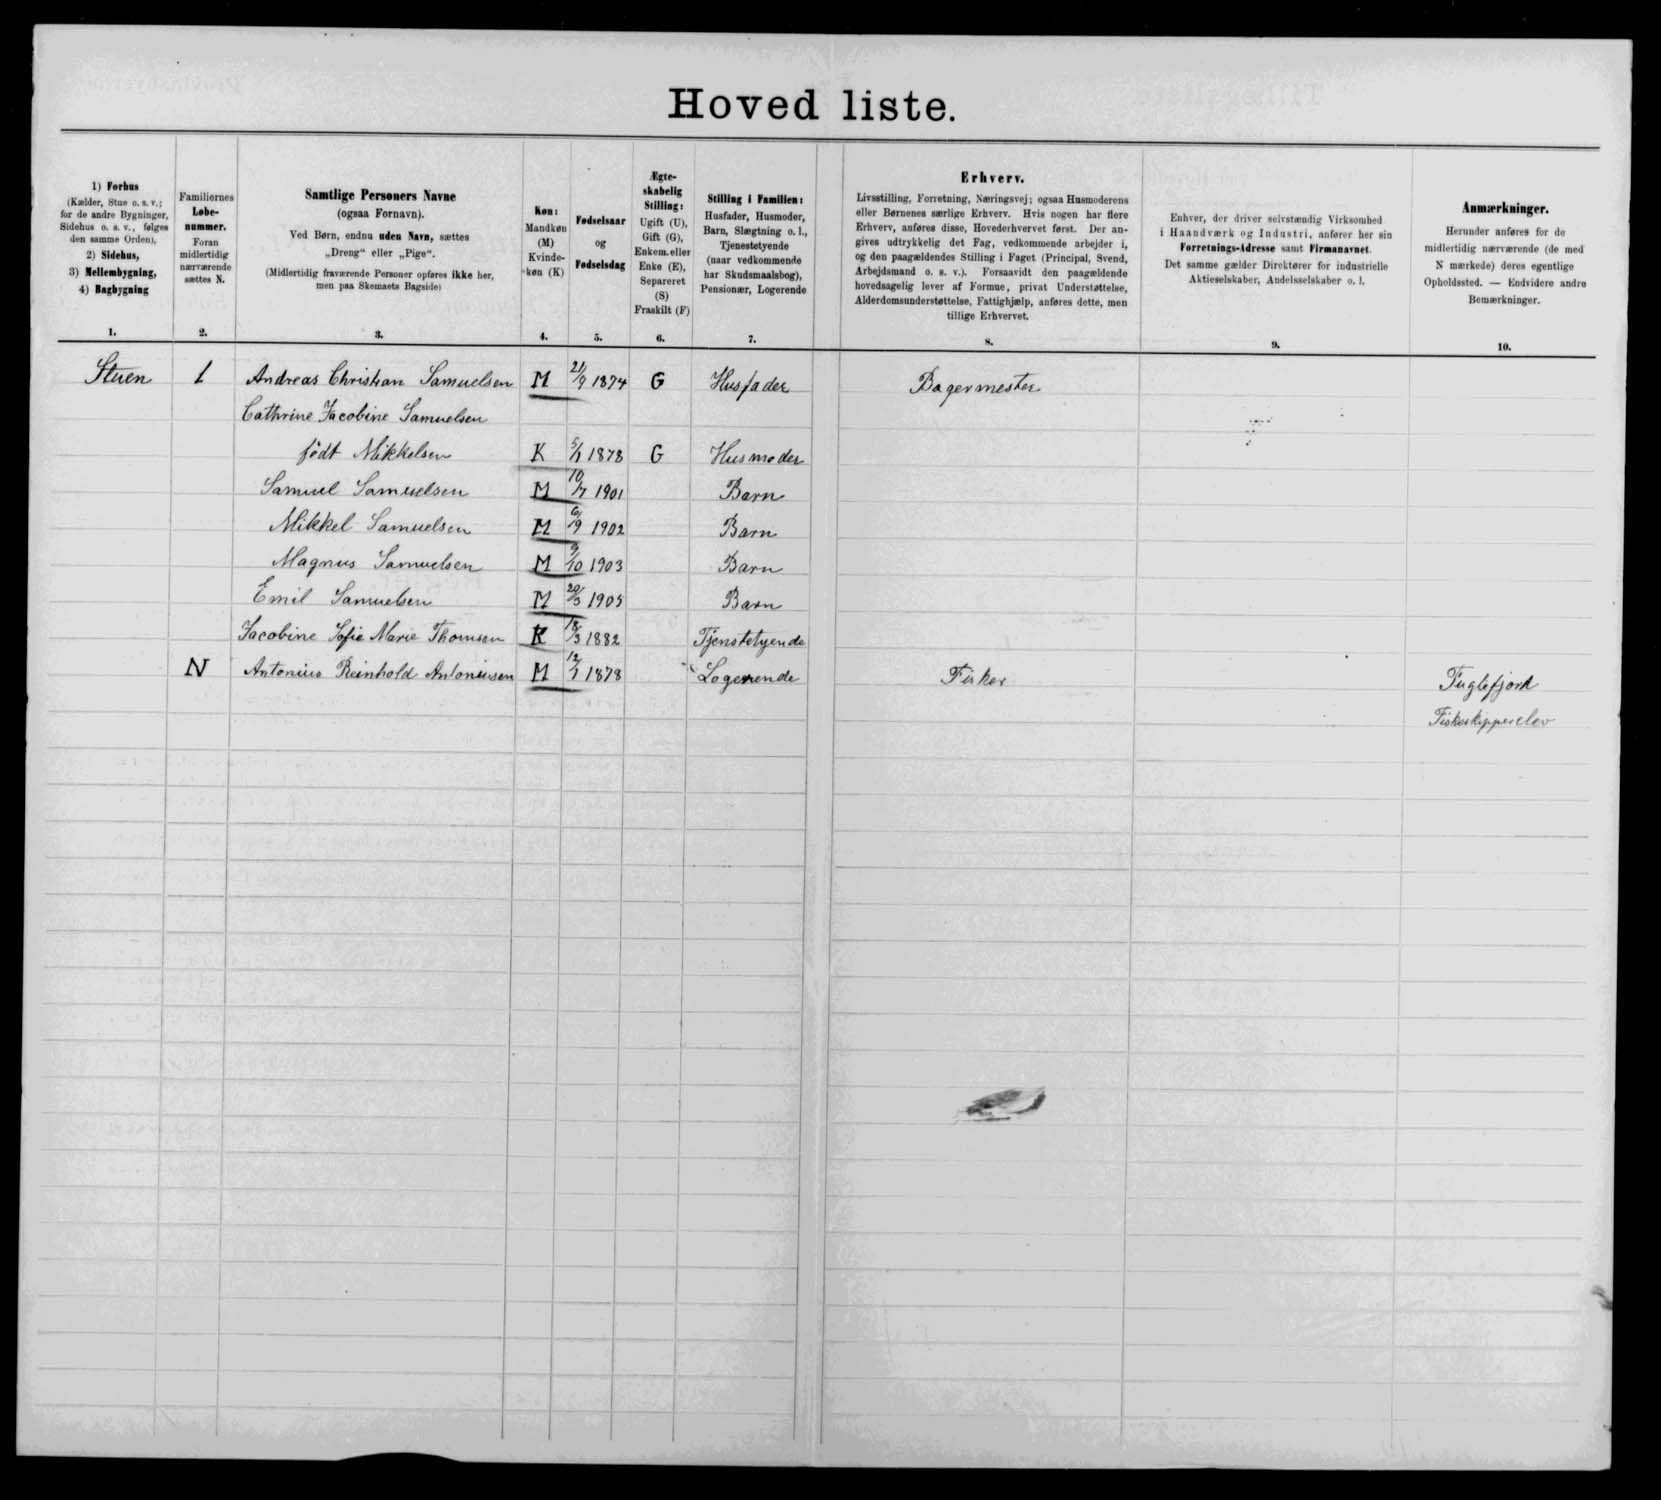 Hoved liste.
1) Forhus
(Kælder, Stue o. s. v.;
for de andre Bygninger,
Sidehus o. s. v., følges
den samme Orden),
2) Sidehus,
3) Mellembygning,
4) Bagbygning
1.
Familiernes
Løbe-
nummer.
Foran
midlertidig
nærværende
sættes N.
2.
Samtlige Personers Navne
(ogsaa Fornavn).
Ved Børn, endnu uden Navn, sættes
„Dreng“ eller „Pige“.
(Midlertidig fraværende Personer opføres ikke her,
men paa Skemaets Bagside)
3.
Køn:
Mandkøn
(M)
Kvinde-
køn (K)
4.
Fødselsaar
og
Fødselsdag
5.
Ægte-
skabelig
Stilling:
Ugift (U),
Gift (G),
Enkem. eller
Enke (E),
Separeret
(S)
Fraskilt (F)
6.
Stilling i Familien:
Husfader, Husmoder,
Barn, Slægtning o. l.,
Tjenestetyende
(naar vedkommende
har Skudsmaalsbog),
Pensionær, Logerende
7.
Erhverv.
Livsstilling, Forretning, Næringsvej; ogsaa Husmoderens
eller Børnenes særlige Erhverv. Hvis nogen har flere
Erhverv, anføres disse, Hovederhvervet først. Der an-
gives udtrykkelig det Fag, vedkommende arbejder i,
og den paagældendes Stilling i Faget (Principal, Svend,
Arbejdsmand o. s. v.). Forsaavidt den paagældende
hovedsagelig lever af Formue, privat Understøttelse,
Alderdomsunderstøttelse, Fattighjælp, anføres dette, men
tillige Erhvervet.
8.
Enhver, der driver selvstændig Virksomhed
i Haandværk og Industri, anfører her sin
Forretnings-Adresse samt Firmanavnet.
Det samme gælder Direktører for industrielle
Aktieselskaber, Andelsselskaber o. l.
9.
Anmærkninger.
Herunder anføres for de
midlertidig nærværende (de med
N mærkede) deres egentlige
Opholdssted. — Endvidere andre
Bemærkninger.
10.
Stuen 1 Andreas Christian Samuelsen M 21/9 1874 G Husfader Bagermester
Cathrine Jacobine Samuelsen
født Mikkelsen K 5/1 1878 G Husmoder
Samuel Samuelsen M 10/7 1901 Barn
Mikkel Samuelsen M 6/9 1902 Barn
Magnus Samuelsen M 9/10 1903 Barn
Emil Samuelsen M 20/3 1905 Barn
Jacobine Sofie Marie Thomsen K 18/3 1882 Tjenstetyende
N Antonius Reinhold Antoniusen M 12/1 1878 Logerende Fisker Fuglefjord
Fiskeskipperelev